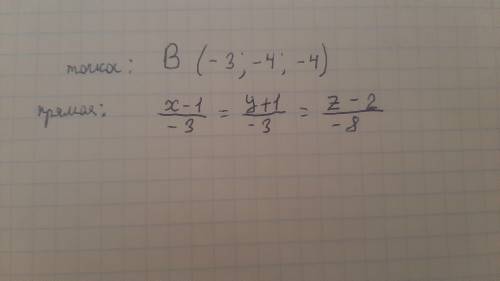 точка: B (-3; -4; -4)
прямая: x-1/-3 = y+1/-3 = z-2/-8